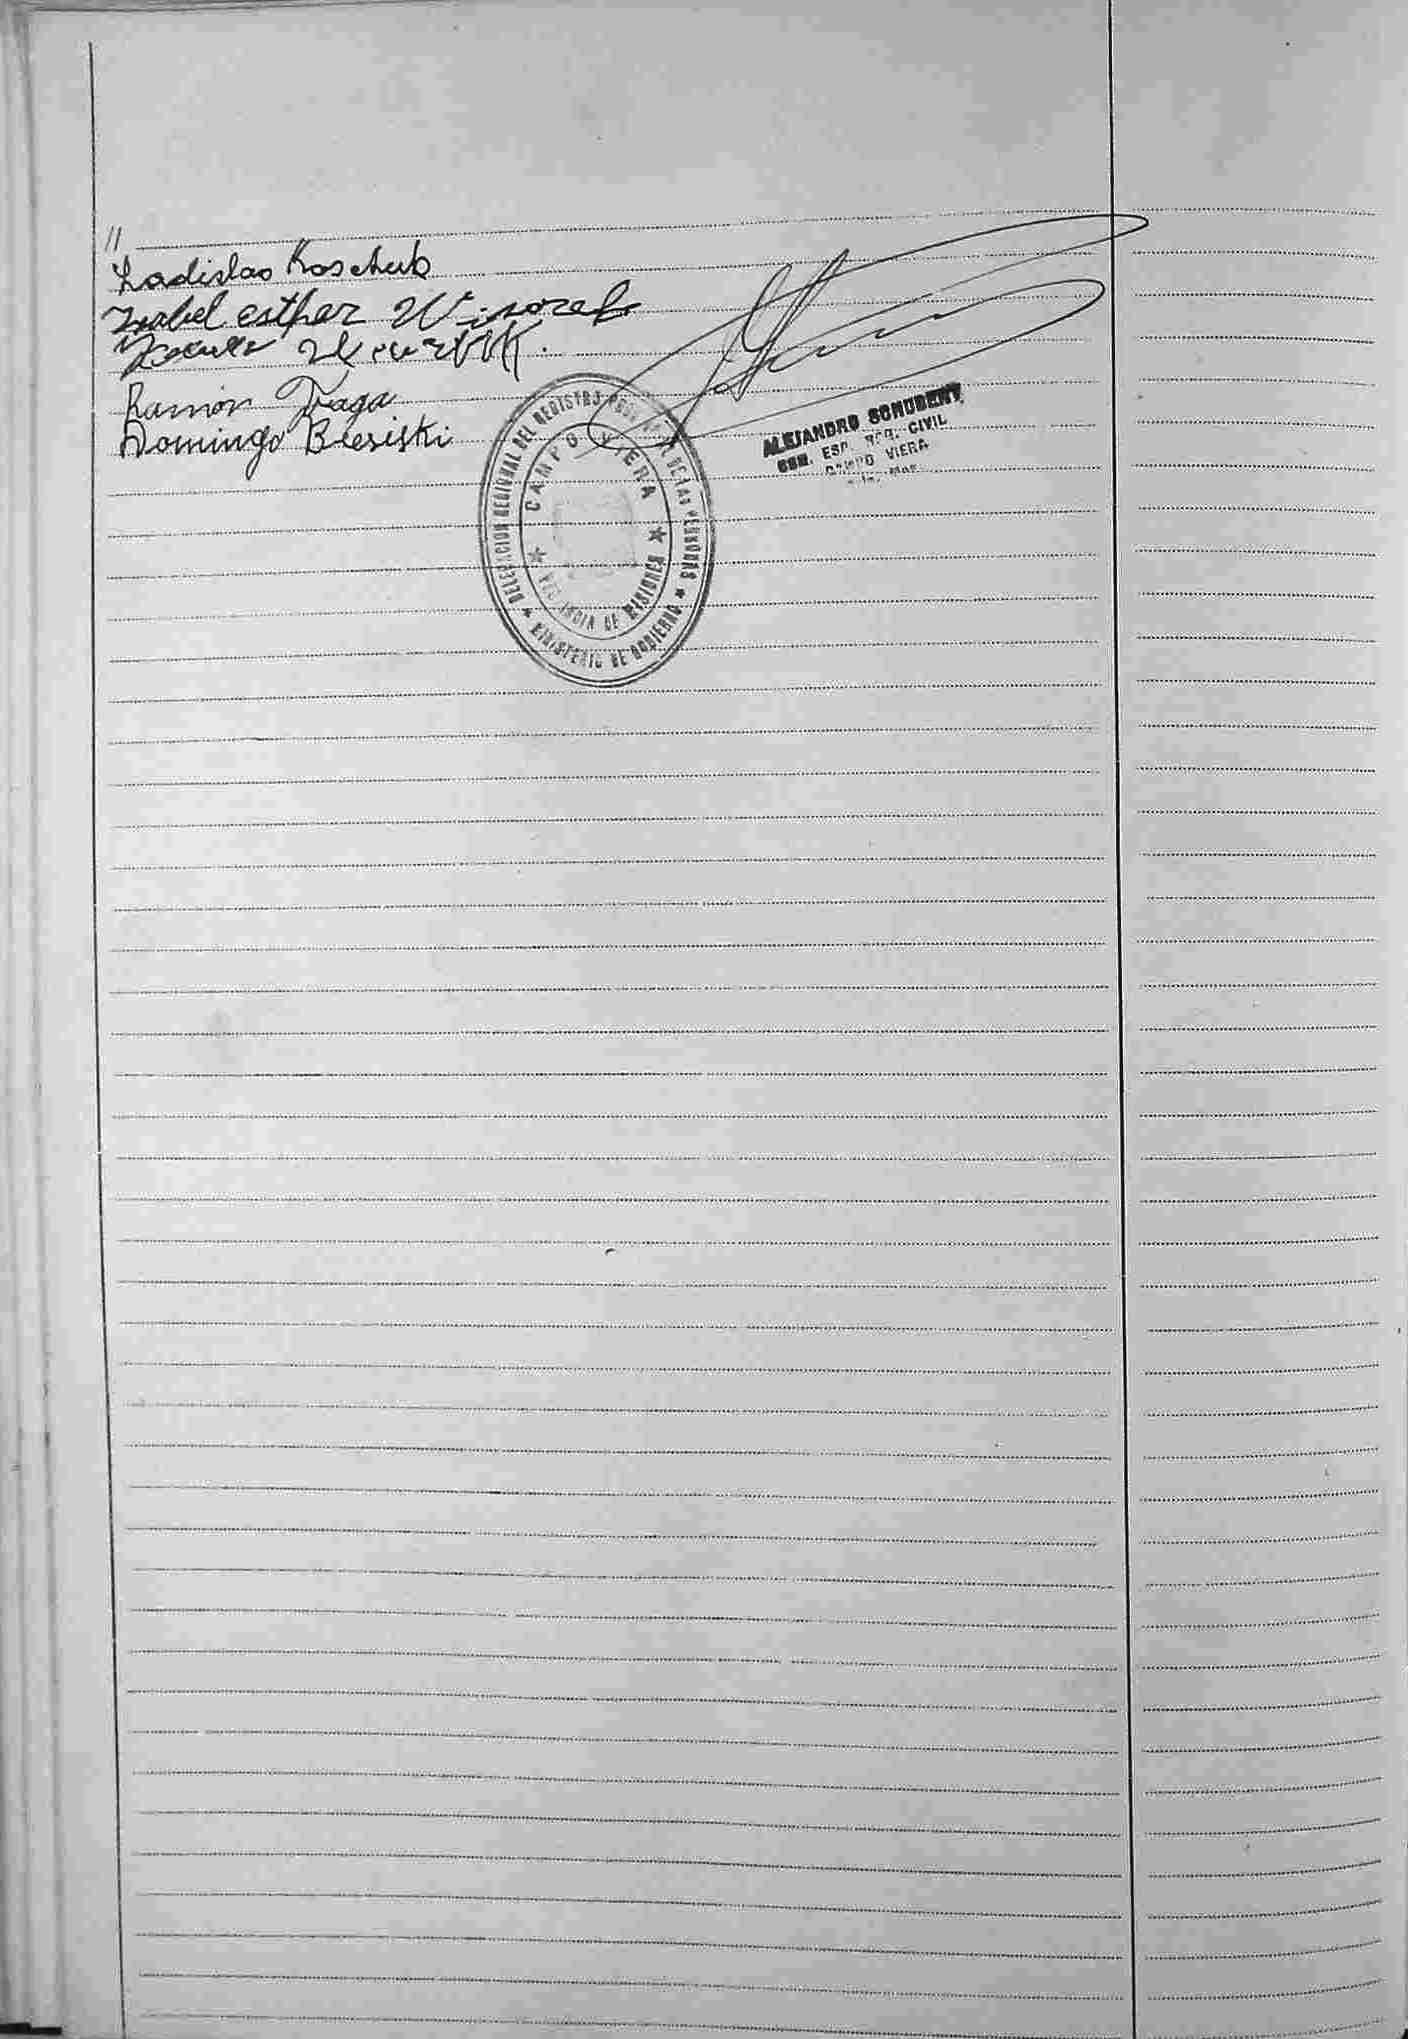 //
Ladislao Koschub
Isabel esther
Ramón Fraga
Domingo Bresiski
DELEGACION REGIONAL DEL REGISTRO PROVINCIAL DE LAS PERSONAS ★ MINISTERIO DE GOBIERNO ★
CAMPO VIERA
★ PROVINCIA DE MISIONES ★
ALEJANDRO SCHUBERT
ESP. REG. CIVIL
CAMPO VIERA